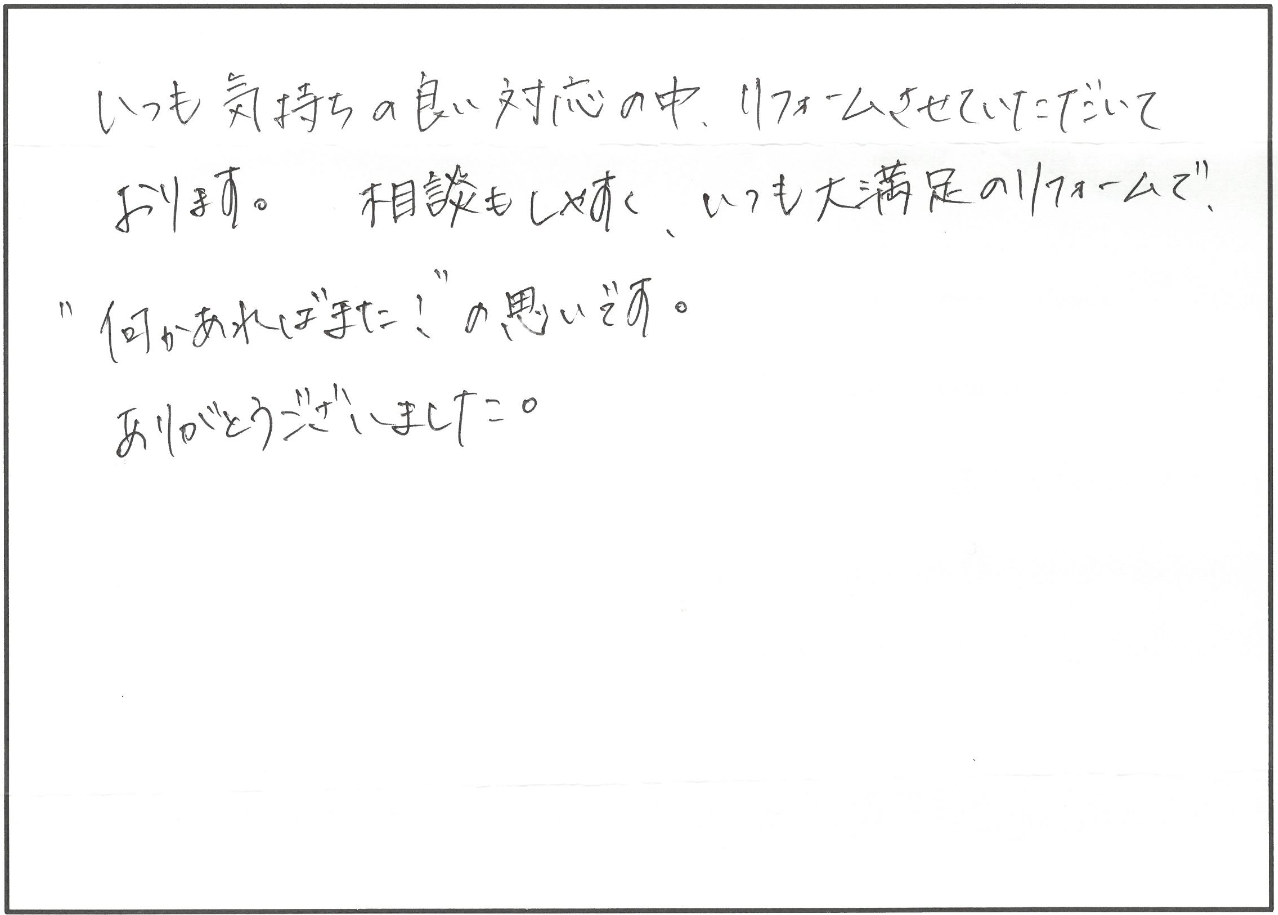 いつも気持ちの良い対応の中、リフォームさせていただいて
おります。 相談もしやすく、いつも大満足のリフォームで、
"何かあればまた!"の思いです。
ありがとうございました。